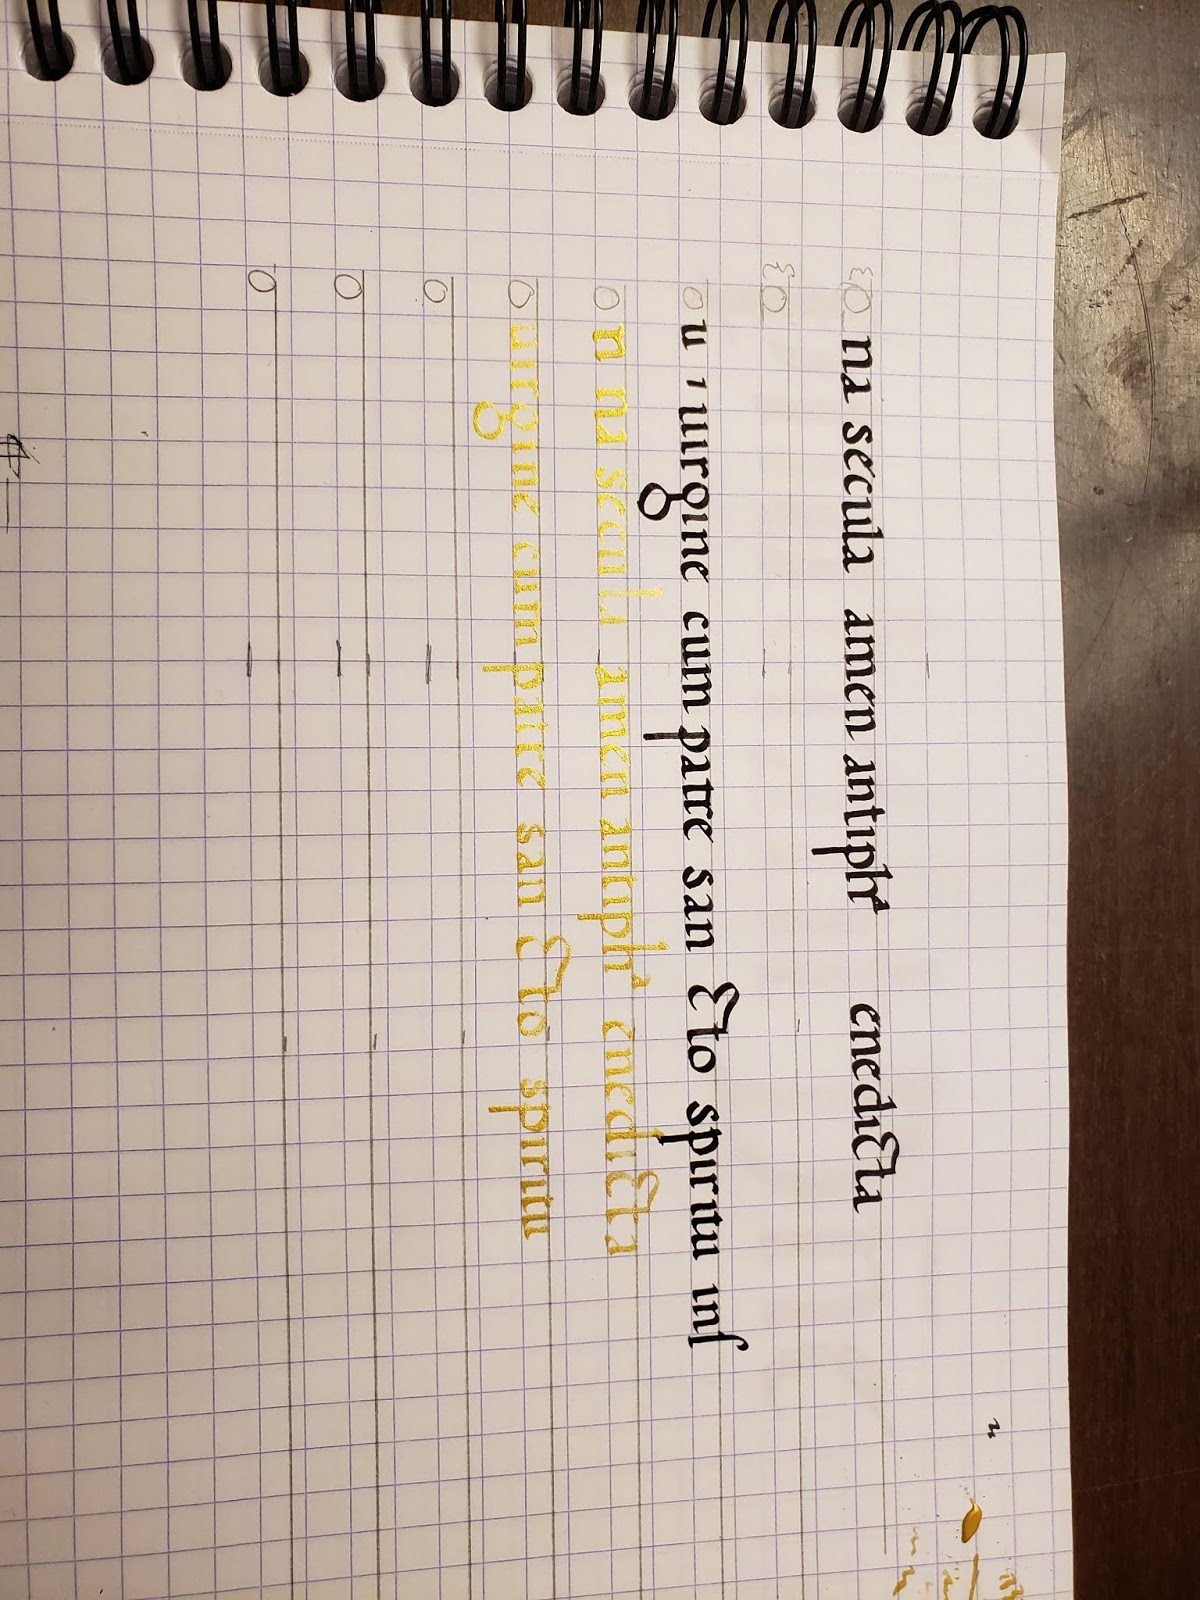 na secula amen antiph^a enedicta
u ı uırgıne cum patre san cto spırıtu ınſ
n na secula amen antıph^a enedıcta
uırgıne cum patre san cto spırıtu